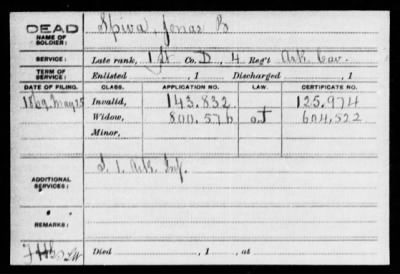 DEAD
NAME OF SOLDIER: Spiva, Jonas B
SERVICE: Late rank, 1 Co. D, 4 Reg't Ark Cav.
TERM OF SERVICE: Enlisted , 1 Discharged , 1
DATE OF FILING. CLASS. APPLICATION NO. LAW. CERTIFICATE NO.
1869, May, 25 Invalid, 143.832 125.974
Widow, 800.576 604.522
Minor,
ADDITIONAL SERVICES: 1. Ark. Inf.
REMARKS:
Died , 1 , at